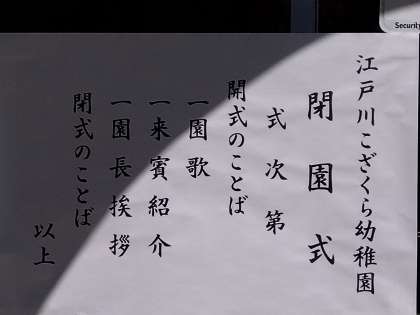 江戸川こざくら幼稚園
閉園式
式次第
開式のことば
一園歌
一来賓紹介
一園長挨拶
閉式のことば
以上
Security